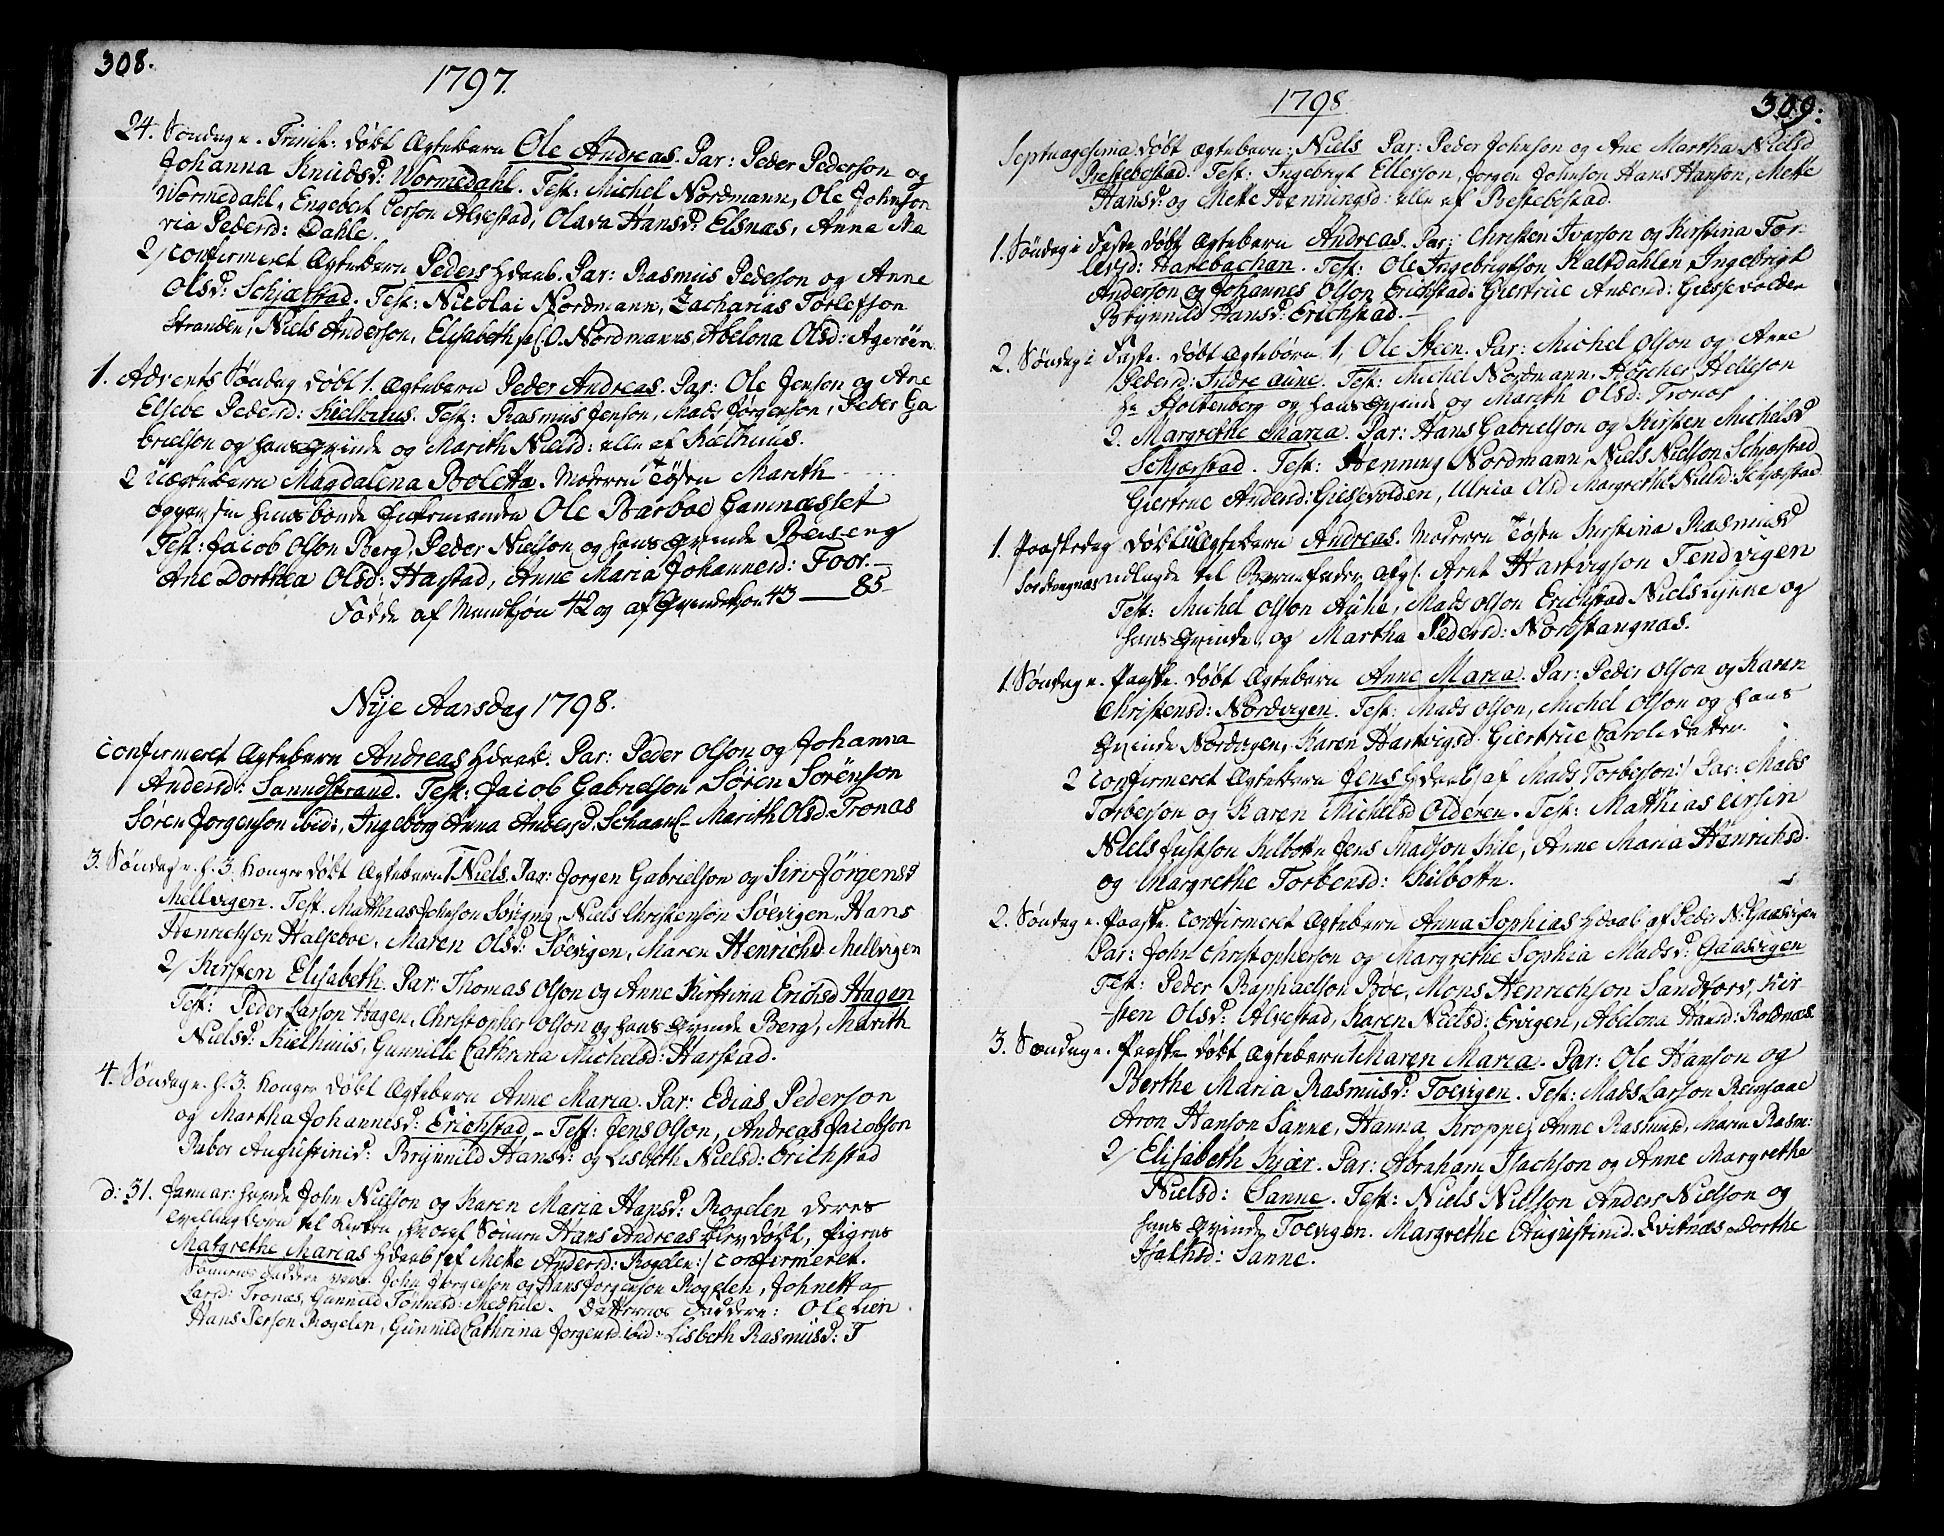 308.
1797.
24. Søndag e. Trinit: døbt Ægtebarn Ole Andreas. Par: Peder Pederson og
Johanna Knudsd: Wormedahl. Test: Michel Nordmann, Ole Johnson
Wormedahl, Engebert Person Alvestad, Olava Hansd: Elsnæs, Anne Ma
ria Pedersd: Dahle.
2/ confirmeret Ægtebarn Peders hdaab. Par: Rasmus Pederson og Anne
Olsd: Schjæstad. Test: Nicolai Nordmann, Zacharias Torlefson
Stranden, Niels Anderson, Elisabeth sal. O. Nordmanns, Abelona Olsd: Agerøen.
1. Advents Søndag døbt 1. Ægtebarn Peder Andreas. Par: Ole Jenson og Ane
Elsebe Pedersd: Kielhuus. Test: Rasmus Jenson, Mads Jørgenson, Peder Ga
brielson og hans Qvinde og Marith Nielsd: alle af Kielhuus.
2 Uægtebarn Magdalena Boletta. Moderen Tøsen Marith
opgav sin huusbonde Ole Barboe Gamnæsset
Test: Jacob Olson Berg, Peder Nielson og hans Qvinde
Ane Dorthea Olsd: Hastad, Anne Maria Johannesd: Foor.
Fødde af Mandkjøn 42 og af Qvindekjøn 43 — 85
Nye Aarsdag 1798.
confirmeret Ægtebarn Andreas hdaab. Par: Peder Olson og Johanna
Andersd: Sanndstrand. Test: Jacob Gabrielson Søren Sørenson
Søren Jørgenson ibid:, Ingeborg Anna Andersd. Marith Olsd. Tronæs
3. Søndag e. h. 3. Konger døbt Ægtebarn 1 Niels. Par: Jørgen Gabrielson og Siri Jørgensd
Mellvigen. Test. Matthias Johnson Niels Christenson Søevigen, Hans
Henrichson Halseboe, Maren Olsd: Søevigen, Maren Henrichsd Mellvigen
2/ Kirsten Elisabeth. Par: Thomas Olson og Anne Kirstina Erichsd Hagen
Test: Peder Larson Hagen, Christopher Olson og hans Qvinde Berg, Marith
Nielsd: Kielhuus, Gunnille Cathrina Michelsd: Harstad.
4. Søndag e. h. 3. Konger døbt Ægtebarn Anne Maria. Par: Edias Pederson
og Martha Johannesd: Erichstad – Test: Jens Olson, Andreas Jacobson
Augustinisd: Brynnild Hansd: og Lisbeth Nielsd: Erichstad
d: 31. Januar: havde John Nielson og Karen Maria Hansd: Rogelen deres
tvillingbørn til Kirken, hvoraf Sønnen Hans Andreas blev døbt, Pigens
Margrethe Marias hdaab /af Mette Andersd: Rogelen:/ confirmeret.
Sønnens Faddere vare: John Jørgenson og Hans Jørgenson Rogelen, Johnetta
Larsd: Tronæs, Gunnild Tønnesd: Medkile. Datterens Faddere: Ole Lien
Hans Person Rogelen, Gunnild Cathrina Jørgensd. ibid: Lisbeth Rasmusd: T
309:
1798
Septuagesima døbt Ægtebarn: Niels Par: Peder Johnson og Ane Martha Nielsd
Bessebostad. Test: Ingebrigt Ellerson, Jørgen Johnson Hans Hanson, Mette
Hansd: og Mette Henningsd: alle af Bessebostad.
1. Søndag i Faste døbt Ægtebarn Andreas. Par: Christen Ivarson og Kirstina Tor-
lesd: Harebachan. Test: Ole Ingebrigtson Kaltdahlen, Ingebrigt
Anderson og Johannes Olson Erichstad: Giertrue Andersd: Giessevolden
Brynnild Hansd: Erichstad.
2. Søndag i Faste. døbt Ægtebørn 1, Ole Steen. Par: Michel Olson og Anne
Pedersd: Indre Aune. Test: Michel Nordmann,
Hr Holtenberg og hans Qvinde og Marith Olsd: Tronæs
2. Margrethe Maria. Par: Hans Gabrielson og Kirsten Michelsd
Schjærstad. Test: Henning Nordmann Niels Nielson Schjærstad
Giertrue Andersd: Giesevolden, Ulrica Olsd Margrethe Nielsd: Schjæstad
1. Paaskedag døbt Uægtebarn Andreas. Moderen Tøsen Kirstina Rasmusd
udlagde til Barnefader Arnt Hartvigson Tendvigen
Test: Michel Olson Aune, Mads Olson Erichstad Niels Lynne og
hans Qvinde og Martha Pedersd: Nordstangnæs.
1. Søndag e. Paaske. døbt Ægtebarn Anne Maria. Par: Peder Olson og Karen
Christensd: Nordvigen. Test: Mads Olson, Michel Olson og hans
Qvinde Nordvigen, Karen Hartvigsd. Giertrue
2 confirmeret Ægtebarn Jens hdaab /af Mads Torberson:/ Par: Mads
Torberson og Karen Michelsd Olderen. Test: Matthias
Niels Justson Kilbotn Jens Madson Kile, Anne Maria Henrichsd.
og Margrethe Torbensd: Kilbotn.
2. Søndag e. Paaske. confirmeret Ægtebarn Anna Sophias hdaab af Peder N: Gaasvigen
Par: John Christopherson og Margrethe Sophia Madsd: Gaasvigen
Test: Peder Raphaelson Bøe, Mons Henrichson Sandtorv, Kir-
sten Olsd: Alvestad, Karen Nielsd: Ervigen, Abelona Hansd: Roldnæs.
3. Søndag e. Paaske døbt Ægtebarn 1 Maren Maria. Par: Ole Hanson og
Berthe Maria Rasmusd: Toevigen. Test: Mads Larson
Aron Hanson Sanne, Hanna Kroppe, Anne Rasmusd, Maria Rasm:
2/ Elisabeth Kjær. Par: Abraham Isachson og Anne Margrethe
Nielsd: Sanne. Test: Niels Nielson Anders Nielson og
hans Qvinde Toevigen. Margrethe Augustinsd. Dorthe
Sanne.